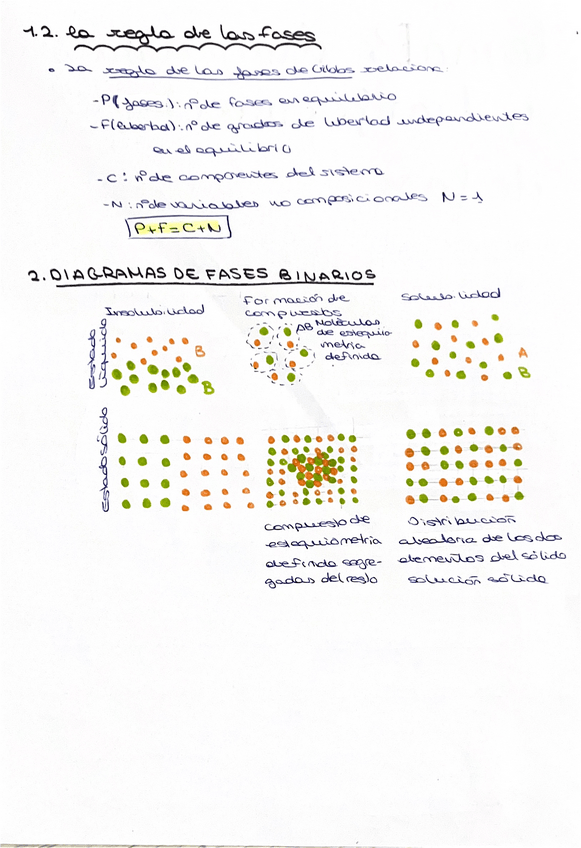 1.2. la regla de las fases
• La regla de las fases de Gibbs relaciona:
-P(fases): nº de fases en equilibrio
-F(libertad): nº de grados de libertad independientes
en el equilibrio
-C: nº de componentes del sistema
-N: nº de variables no composicionales N=1
P+F=C+N
2. DIAGRAMAS DE FASES BINARIOS
Insolubilidad
Formación de
compuestos
Solubilidad
Estado
líquido
B
B
AB Moléculas
de estequio
metría
definida
A
B
Estado sólido
compuesto de
estequiometría
definida segre-
gadas del resto
Distribución
aleatoria de los dos
elementos del sólido
solución sólida